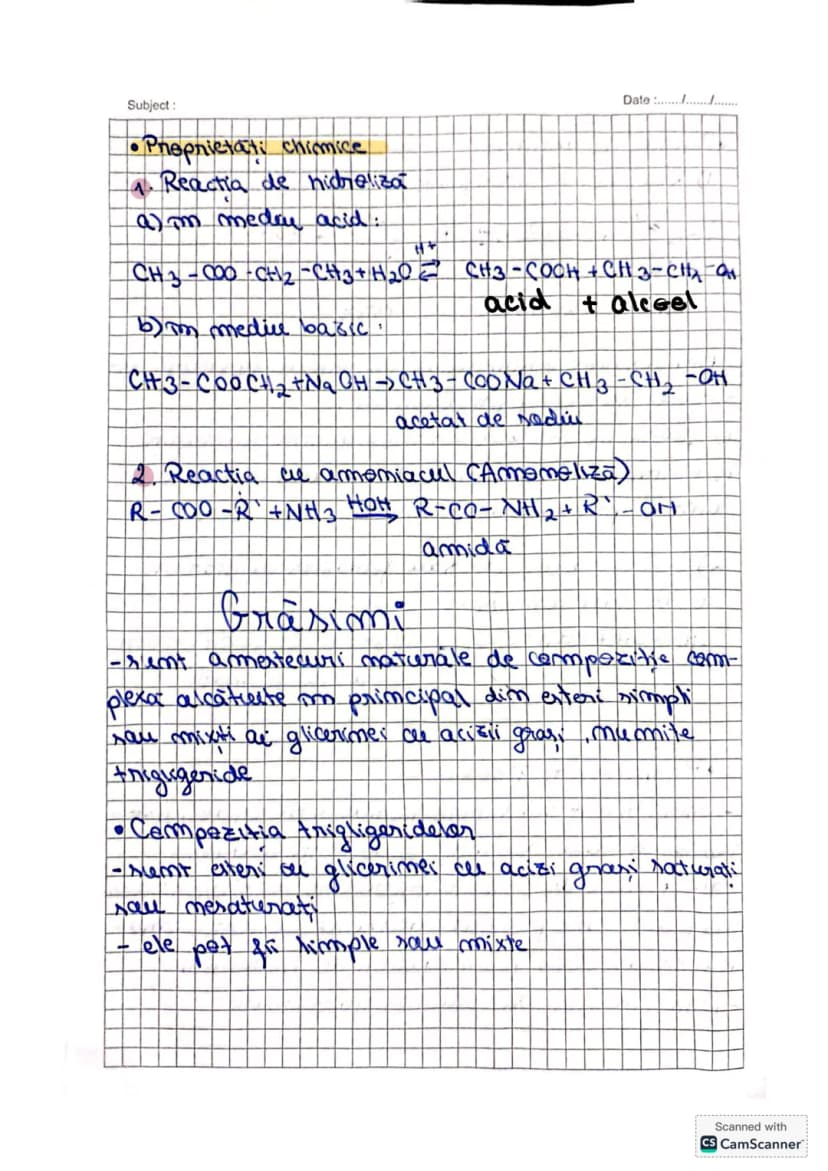 Subject :
Date :....../....../.......
• Proprietăți chimice
1. Reacția de hidroliză
a) în mediu acid:
H+
CH3-COO-CH2-CH3+H2O ⇄ CH3-COOH+CH3-CH2-OH
acid + alcool
b) în mediu bazic:
CH3-COOCH2+NaOH→CH3-COONa+CH3-CH2-OH
acetat de sodiu
2. Reactia cu amoniacul (Amonoliză)
R-COO-R'+NH3 HOH→ R-CO-NH2+R'-OH
amidă
Grăsimi
-sunt amestecuri naturale de compoziție com-
plexă alcătuite în principal din esteri simpli
sau micști ai glicerinei cu acizii grași, numite
trigligeride
• Compoziția trigligeridelor
-sunt esteri ai glicerinei cu acizi grași saturați
sau nesaturați
- ele pot fi simple sau mixte
Scanned with
CS CamScanner